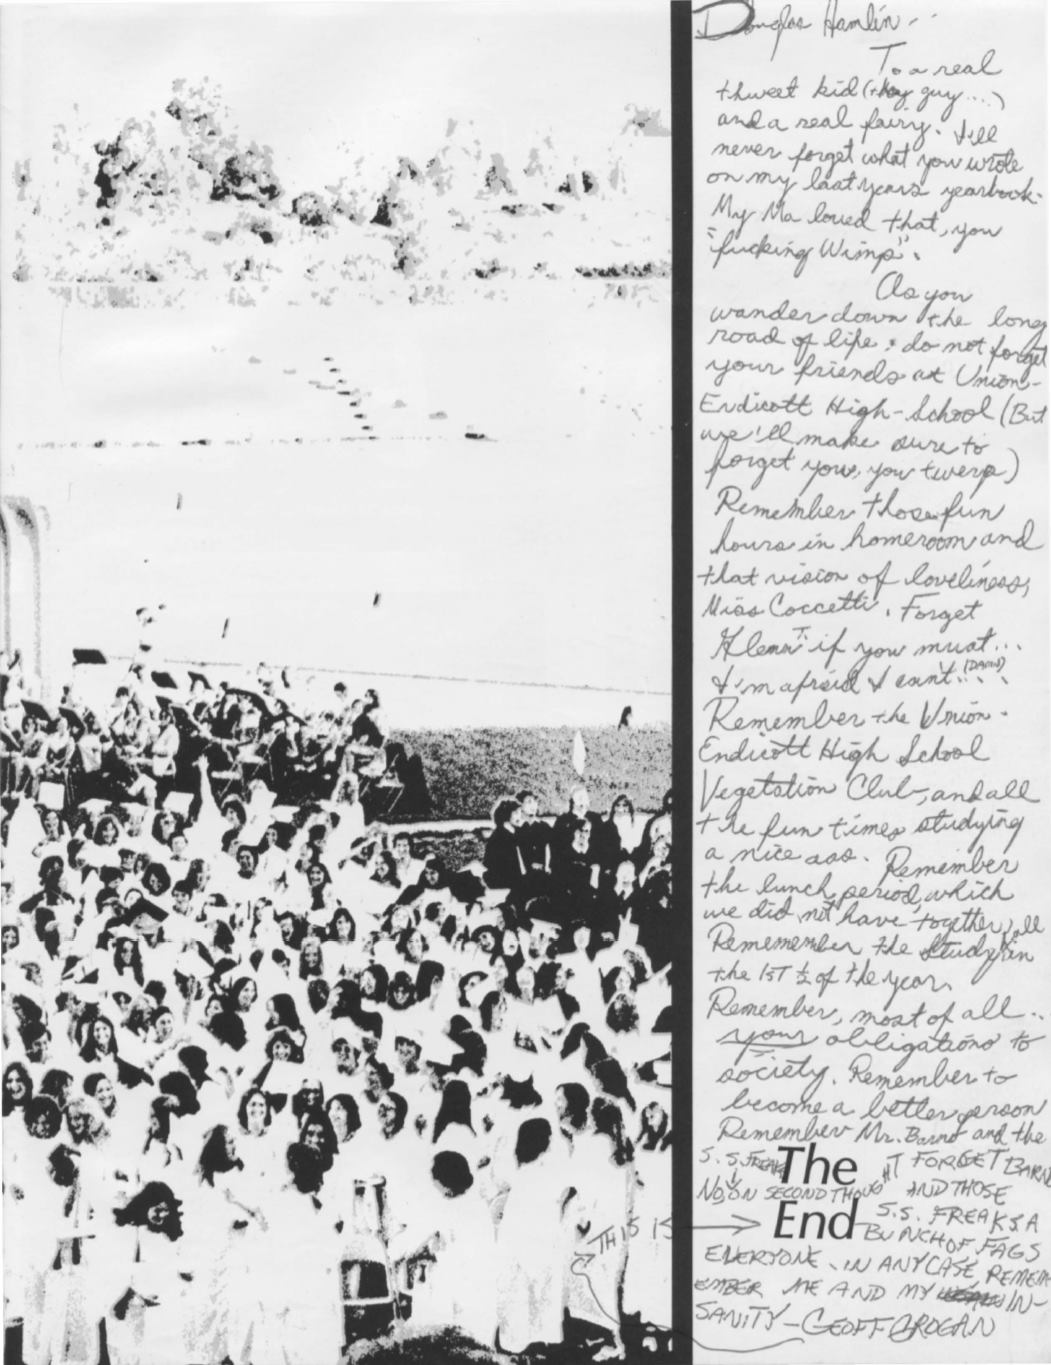 Douglas Hamlin--
To a real
thweet kid (they guy....)
and a real fairy. I'll
never forget what you wrote
on my last years yearbook.
My Ma loved that, you
"fucking Wimp".
As you
wander down the long
road of life, do not forget
your friends at Union-
Endicott High-School (But
we'll make sure to
forget you, you twerp)
Remember those fun
hours in homeroom and
that vision of loveliness,
Miss Coccetti. Forget
if you must...
I'm afraid I can't... (DAMN)
Remember the Union-
Endicott High School
Vegetation Club, and all
the fun times studying
a nice ass. Remember
the lunch period, which
we did not have together, all
Rememember the study in
the 1ST ½ of the year.
Remember, most of all..
your obligations to
society. Remember to
become a better person
Remember Mr. Barno and the
S.S. FREAKS
NO, ON SECOND THOUGHT FORGET BARNO
AND THOSE
S.S. FREAKS A
BUNCH OF FAGS
EVERYONE. IN ANY CASE, REMEM-
EMBER ME AND MY IN-
SANITY - GEOFF GROGAN
The
End
THIS IS